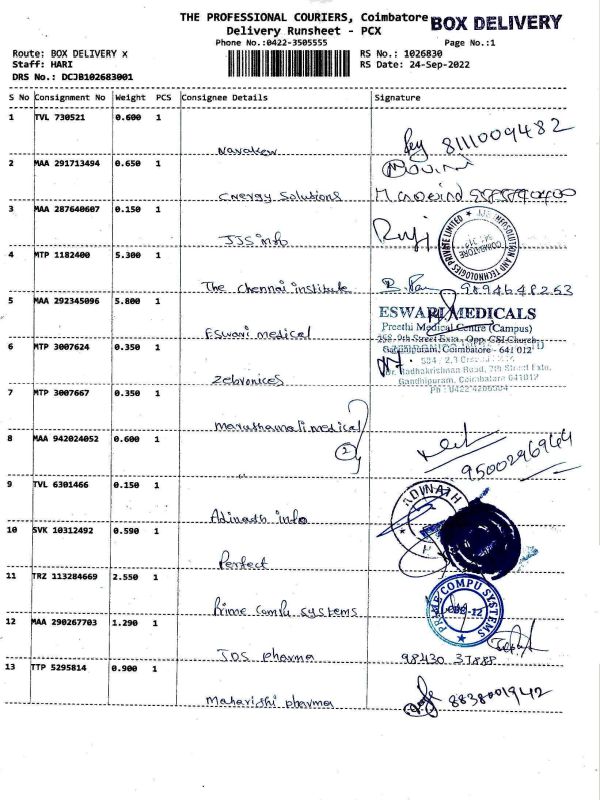 THE PROFESSIONAL COURIERS, Coimbatore BOX DELIVERY
Delivery Runsheet - PCX
Phone No.:0422-3505555 Page No.:1
Route: BOX DELIVERY x RS No.: 1026830
Staff: HARI RS Date: 24-Sep-2022
DRS No.: DCJB102683001
S No Consignment No Weight PCS Consignee Details Signature
1 TVL 730521 0.600 1
8111009482
2 MAA 291713494 0.650 1
Energy Solutions
3 MAA 287640607 0.150 1
JJS info
4 MTP 1182400 5.300 1
The chennai institute 9894648253
5 MAA 292345096 5.800 1
ESWARI MEDICALS
Preethi Medical Centre (Campus)
Eswari medical
258, 9th Street Extn., Opp. CSI Church
Gandhipuram, Coimbatore - 641 012
6 MTP 3007624 0.350 1
Dr. Radhakrishnan Road, 7th Street Extn,
Zebronices
Gandhipuram, Coimbatore 641012
7 MTP 3007667 0.350 1
maruthamali medical
8 MAA 942024052 0.600 1
2
9500296964
9 TVL 6301466 0.150 1
ADINATH
Adinath info
10 SVK 10312492 0.590 1
Perfect
11 TRZ 113284669 2.550 1
PRIME COMPU SYSTEMS
Prime Compu systems
12 MAA 290267703 1.290 1
JDS pharma 98430 37888
13 TTP 5295814 0.900 1
Maharishi pharma 8838001942